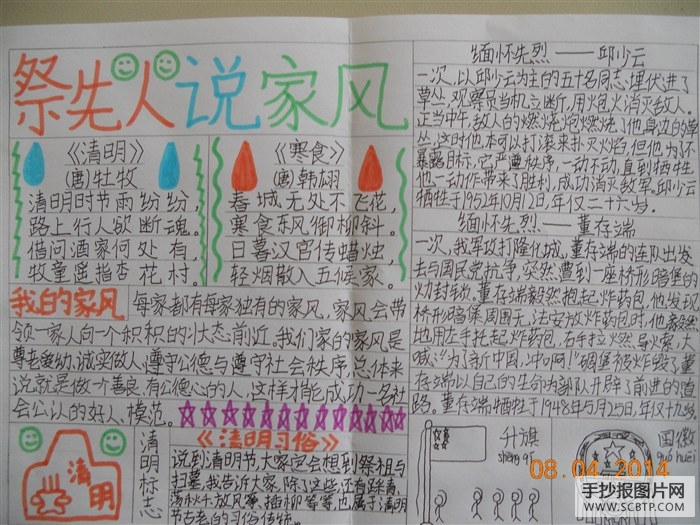 祭先人说家风
《清明》
(唐)牡牧
清明时节雨纷纷,
路上行人欲断魂。
借问酒家何处有,
牧童遥指杏花村。
《寒食》
(唐)韩翃
春城无处不飞花,
寒食东风御柳斜。
日暮汉宫传蜡烛,
轻烟散入五候家。
我的家风
每家都有每家独有的家风,家风会带
领一家人向一个积积的状态前近。我们家的家风是
尊老爱幼,诚实做人,遵守公德与遵守社会秩序,总体来
说就是做一个善良,有公德心的人,这样才能成为一名社
会公认的好人、模范。
清明
清明标志
《清明习俗》
说到清明节,大家定会想到祭祖与
扫墓,我告诉大家,除了这些,还有踏青,
荡秋千,放风筝,插柳等等,也属于清明
节古老的习俗传统。
缅怀先烈——邱少云
一次,以邱少云为主的五十名同志,埋伏进了
草丛,观察员当机立断,用炮火消灭敌人。
正当中午,敌人的燃烧炮燃烧了他身边的草
丛,这时他本可以打滚来扑灭火焰,但他为了不
暴露目标,它严遵秩序,一动不动,直到牺牲。
他一动作带来了胜利,成功消灭敌军。邱少云
牺牲于1952年10月12日,年仅二十六岁。
缅怀先烈——董存瑞
一次,我军攻打隆化城,董存瑞的连队出发
去与国民党抗争,突然,遭到一座桥形暗堡的
火力封锁。董存瑞毅然抱起炸药包,他发现
桥形暗堡周围无法安放炸药包时,他毅然
地用左手托起炸药包,右手拉燃导火索,大
喊:“为了新中国,冲啊!”碉堡被炸毁了,董
存瑞以自己的生命为部队开辟了前进的道
路。董存瑞牺牲于1948年5月25日,年仅十九岁
升旗
shēng qí
国徽
guó huī
08.04.2014
手抄报图片网
WWW.SCBTP.COM